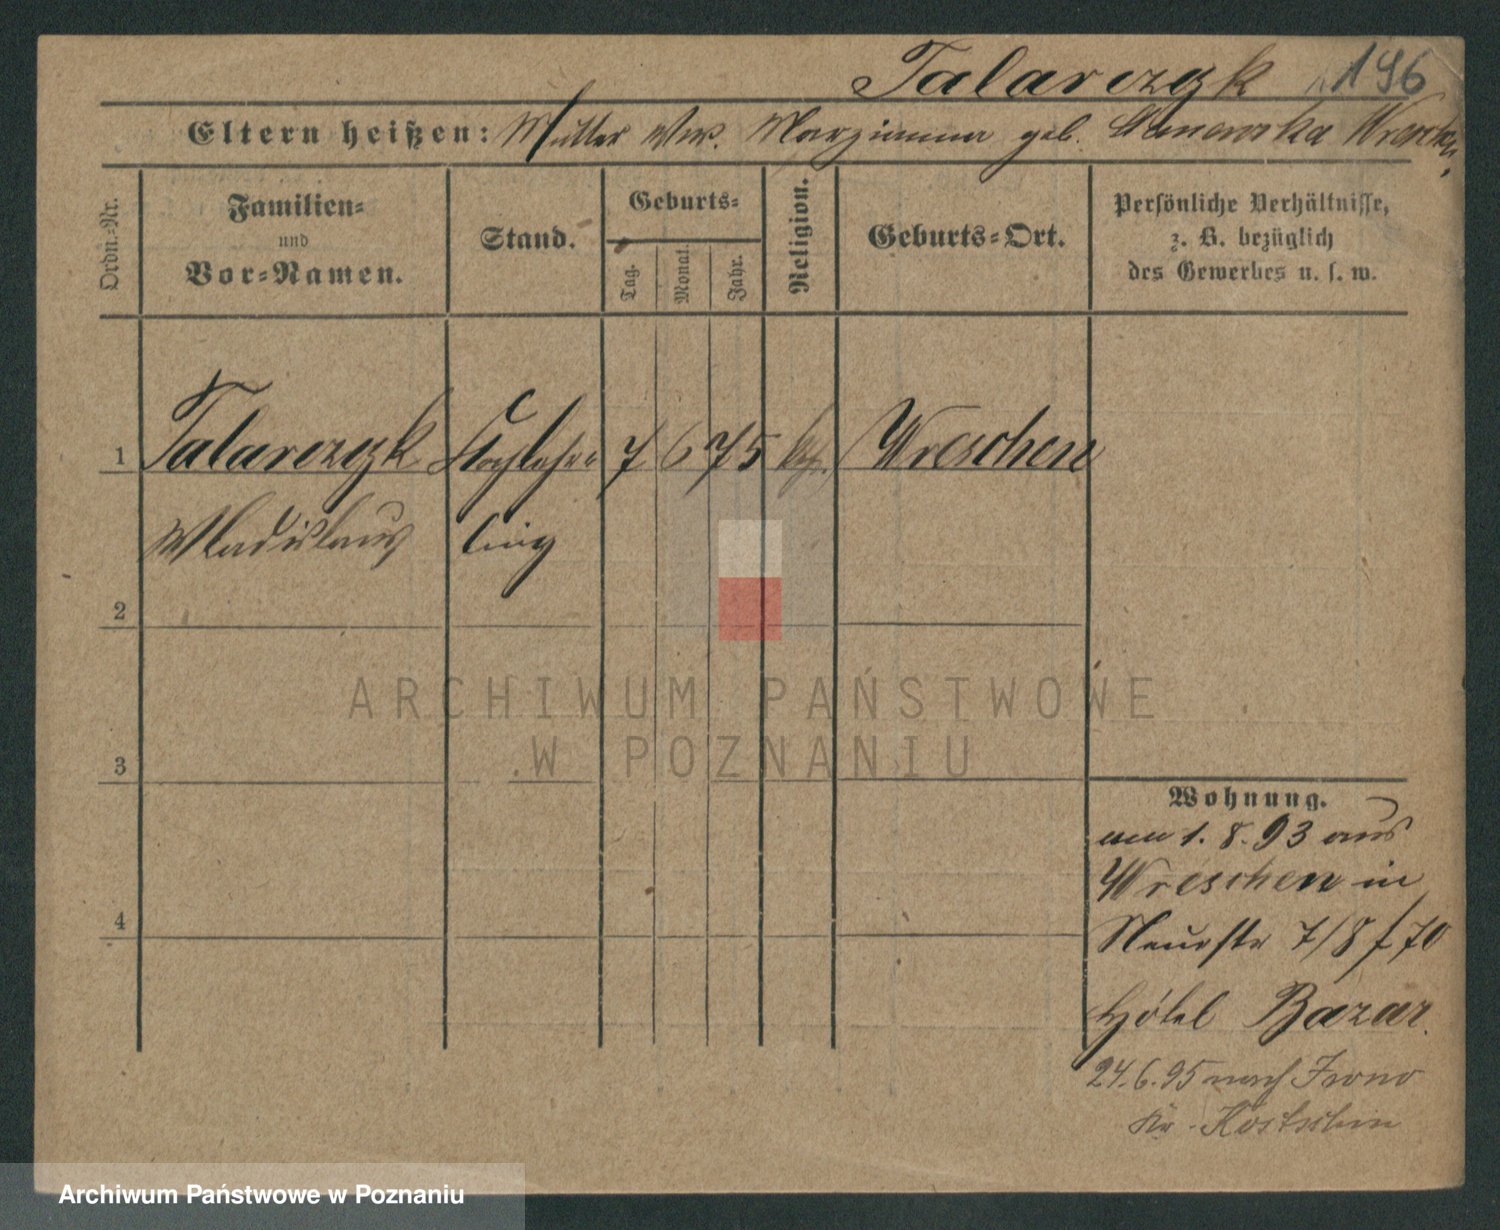 Talarczyk 196
Eltern heißen: Mutter Ww. Marzianna geb. Wreschen
Ordn.-Nr.
Familien-
und
Vor-Namen.
Stand.
Geburts-
Tag.
Monat.
Jahr.
Religion.
Geburts-Ort.
Persönliche Verhältnisse,
z. B. bezüglich
des Gewerbes u. s. w.
1 Talarczyk Kochlehr 7 6 75 kath. Wreschen
Wladislaus ling
2
ARCHIWUM PAŃSTWOWE
W POZNANIU
3
Wohnung.
am 1. 8. 93 aus
Wreschen in
4
Neuestr 7/8 f 70
Hôtel Bazar.
24.6.95 nach
Kr. Kostschin
Archiwum Państwowe w Poznaniu